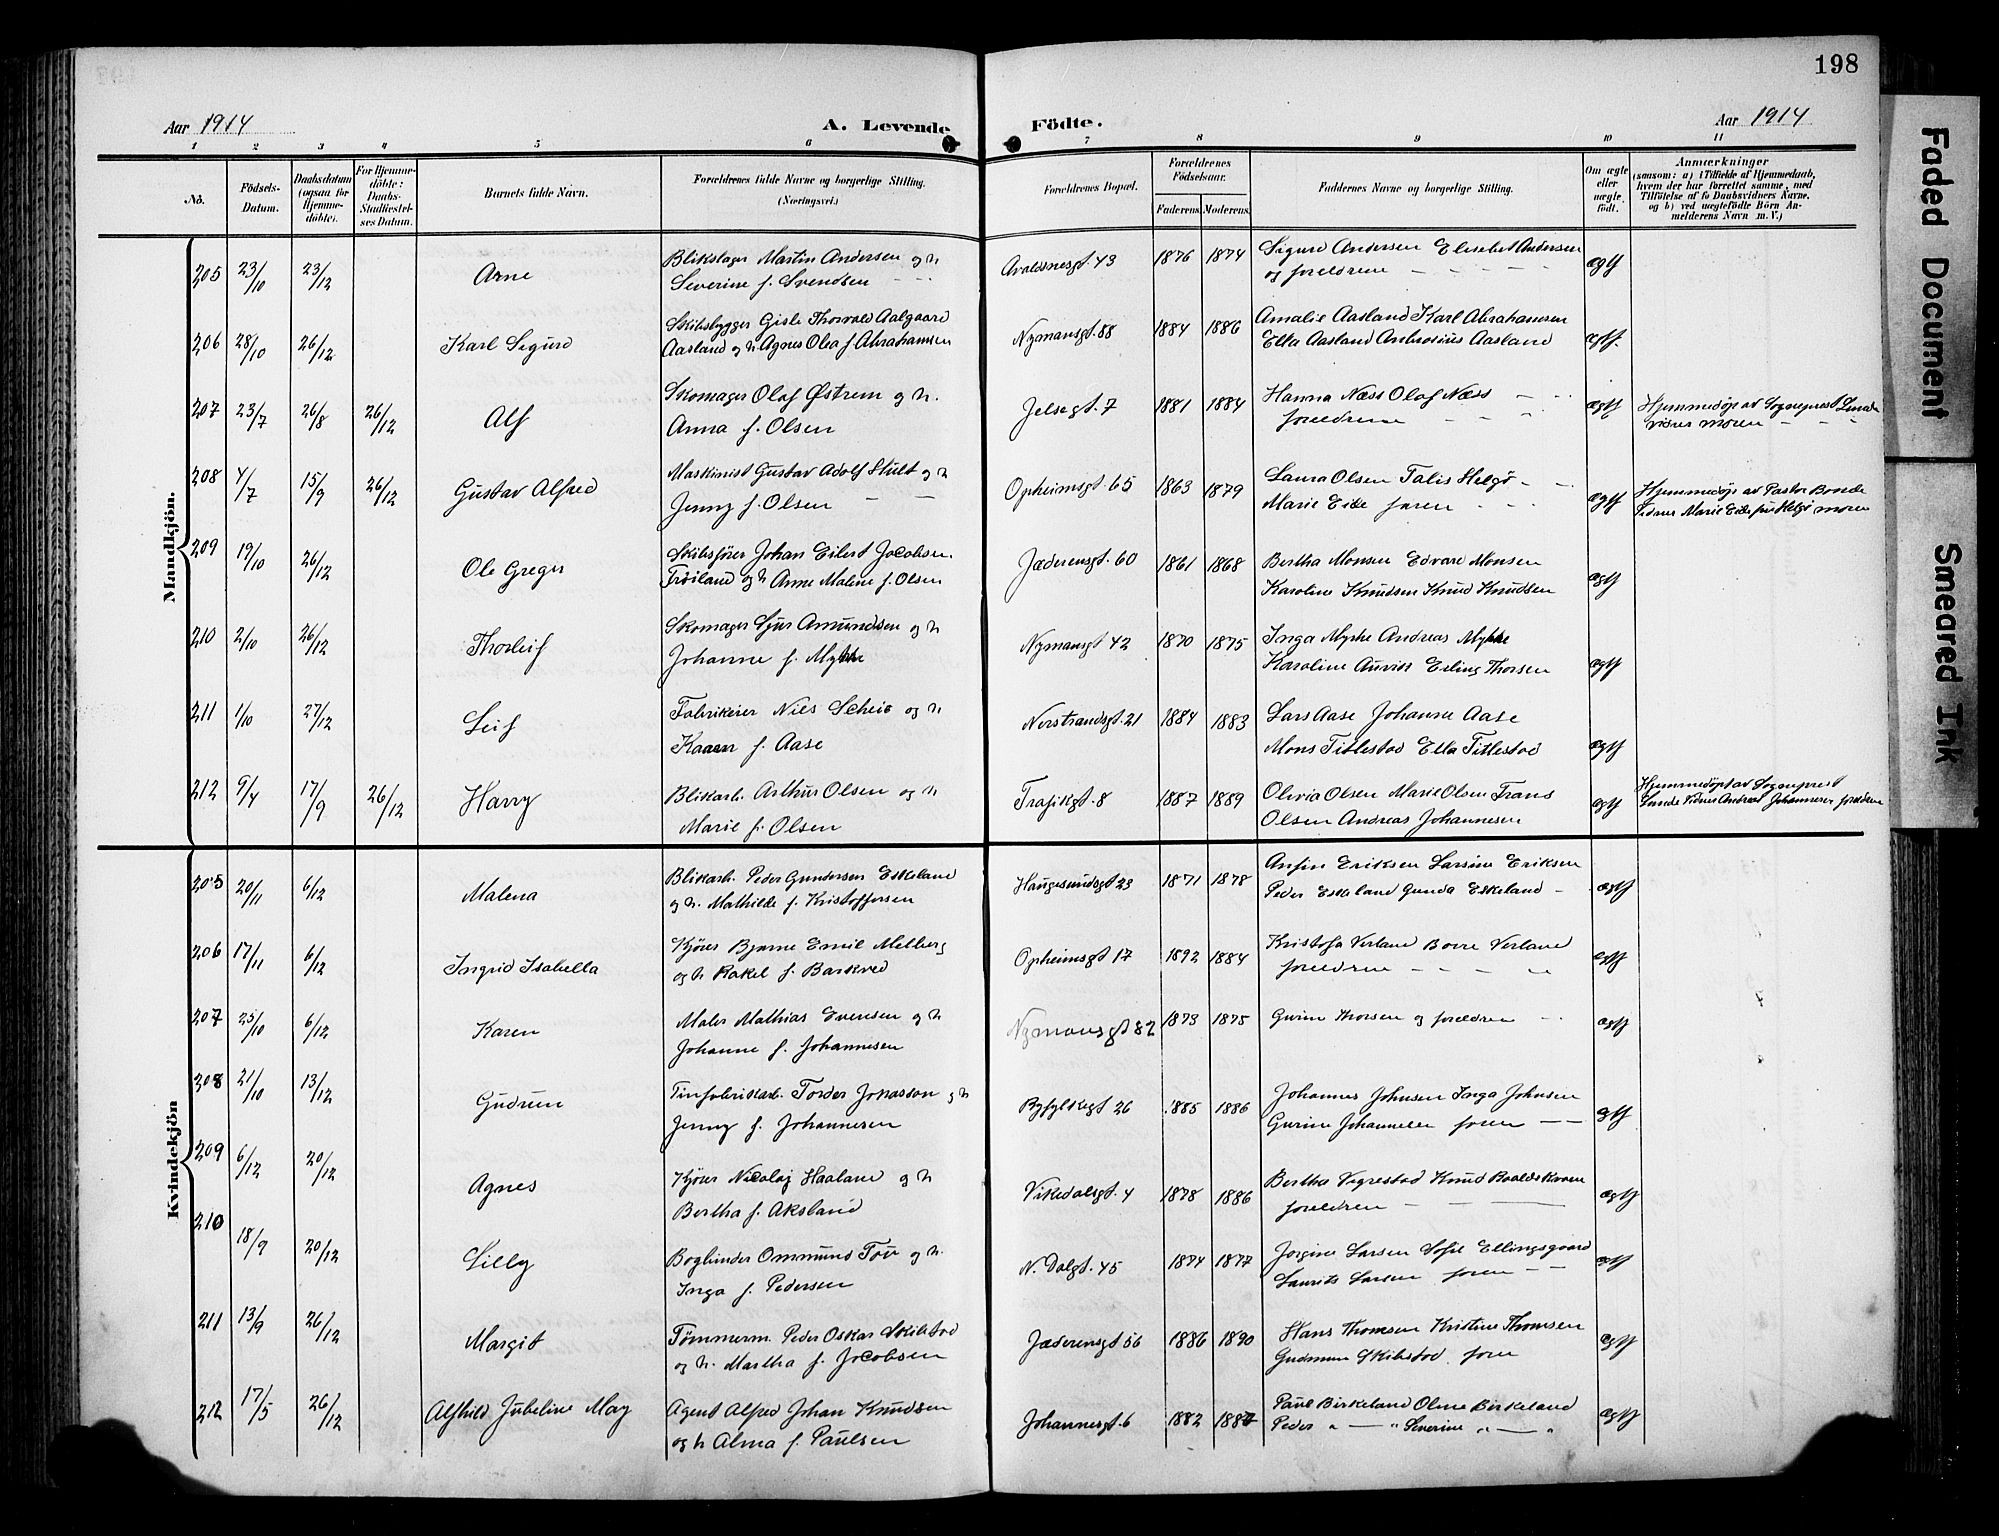 198
Aar 1914
A. Levende Födte.
Aar 1914
1 2 3 4 5 6 7 8 9 10 11
No.
Födsels-Datum.
Daabsdatum (ogsaa for Hjemmedöbte).
For Hjemmedöbte: Daabs-Stadfæstelses Datum.
Barnets fulde Navn.
Forældrenes fulde Navne og borgerlige Stilling. (Næringsvei.)
Forældrenes Bopæl.
Forældrenes Födselsaar.
Faderens. Moderens.
Faddernes Navne og borgerlige Stilling.
Om ægte eller uægte födt.
Anmærkninger
(saasom: a) i Tilfælde af Hjemmedaab, hvem der har forrettet samme, med Tilföielse af to Daabsvidners Navne, og b) ved uægtefödte Börn Anmelderens Navn m. V.)
Mandkjön.
205 23/10 23/12 Arne
Blikslager Martin Andersen og h
Severine f. Svendsen
Avaldsnesgt 43 1876 1874
Sigurd Andersen Elisebet Andersen
og foreldrene
ægtf
206 28/10 26/12 Karl Sigurd
Skibsbygger Gisle Thorvald Aalgaard
Aasland og h Agnes Olea f Abrahamsen
Nymansgt. 88 1884 1886
Amalie Aasland Karl Abrahamsen
Ella Aasland Ambrosius Aasland
ægtf.
207 23/7 26/8 26/12 Alf
Skomager Olaf Østrem og h.
Anna f. Olsen
Jelsegt. 7 1881 1884
Hanna Næss Olaf Næss
foreldrene
ægtf
Hjemmedøpt av Sogneprest Lunde
vidner moren
208 4/7 15/9 26/12 Gustav Alfred
Maskinist Gustav Adolf Hult og h
Jenny f. Olsen
Opheimsgt 65 1863 1879
Laura Olsen Talis Helgø
Marie Eide faren
ægtf
Hjemmedøpt av Pastor Bonde
Vidner Marie Eide fru Helgø moren
209 19/10 26/12 Ole Greger
Skibsfører Johan Eilert Jacobsen
Trøiland og h Anne Malene f. Olsen
Jæderensgt. 60 1861 1868
Bertha Monsen Edvard Monsen
Karoline Knudsen Knud Knudsen
ægtf
210 2/10 26/12 Thorleif
Skomager Sjur Amundsen og h
Johanne f. Myhre
Nymansgt 42 1870 1875
Inga Myhre Andreas Myhre
Karoline Erling Thorsen
ægtf
211 1/10 27/12 Leif
Fabrikeier Nils Scheie og h
Karen f. Aase
Nerstrandsgt. 21 1884 1883
Lars Aase Johanne Aase
Mons Titlestad Ella Titlestad
ægtf
212 9/4 17/9 26/12 Harry
Blikarb. Arthur Olsen og h
Marie f. Olsen
Trafikgt. 8 1887 1889
Olivia Olsen Marie Olsen Frans
Olsen Andreas Johannesen
ægtf
Hjemmedøpt av Sogneprest
Lunde Vidner Andreas Johannesen foreldrene
Kvindekjön
205 20/11 6/12 Malena
Blikarb. Peder Gundersen Eskeland
og h. Mathilde f. Kristoffersen
Haugesundsgt 23 1871 1878
Anfin Eriksen Larsine Eriksen
Peder Eskeland Gunda Eskeland
ægtf
206 17/11 6/12 Ingrid Isabella
Kjører Bjarne Emil Melberg
og h Rakel f. Barkved
Opheimsgt 17 1892 1884
Kristofa Verland Borre Verland
foreldrene
ægtf
207 25/10 6/12 Karen
Maler Mathias Evensen og h
Johanne f. Johannesen
Nymansgt 82 1873 1875
Gurine Thorsen og foreldrene
ægtf
208 21/10 13/12 Gudrun
Tinfabrikarb. Torder Jonasson og h
Jenny f. Johannesen
Ryfylkegt 26 1885 1886
Johannes Johnsen Inga Johnsen
Gurine Johannesen faren
ægtf
209 6/12 20/12 Agnes
Kjører Nicolaj Haaland og h
Bertha f. Aksland
Vikedalsgt. 4 1878 1886
Bertha Vigrestad Knud Roaldskvam
foreldrene
ægtf
210 18/9 20/12 Lilly
Bogbinder Ommund Tou og h.
Inga f. Pedersen
N. Dalgt. 45 1874 1877
Jorgine Larsen Sofie Ellingsgaard
Laurits Larsen faren
ægtf
211 13/9 26/12 Margit
Tømmerm. Peder Oskar Skibstad
og h. Martha f. Jacobsen
Jæderensgt 56 1886 1890
Hans Thomsen Kristine Thomsen
Gudmun Skibstad. faren
ægtf
212 17/5 26/12 Alfhild Jubeline May
Agent Alfred Johan Knudsen
og h Alma f. Paulsen
Johannesgt. 6 1882 1887
Paul Birkeland Oline Birkeland
Peder " — " Severine " — "
ægtf
Faded Document
Smeared Ink